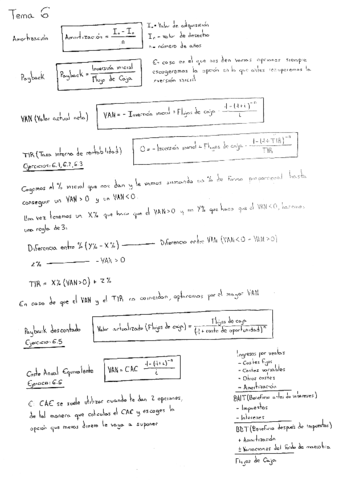 Tema 6
Amortización
Amortización = I₀ - Iᵣ / n
I₀ = Valor de adquisición
Iᵣ = valor de desecho
n = número de años
Payback
Payback = Inversión inicial / Flujo de Caja
En caso en el que nos den varias opciones siempre
escogeremos la opción en la que antes recuperemos la
inversión inicial
VAN (Valor actual neto)
VAN = - Inversión inicial + Flujos de caja · 1-(1+i)⁻ⁿ / i
TIR (Tasa interna de rentabilidad)
Ejercicio 6.1, 6.2, 6.3
0 = - Inversión inicial + Flujos de caja · 1-(1+TIR)⁻ⁿ / TIR
Cogemos el % inicial que nos dan y le vamos sumando un % de forma proporcional hasta
conseguir un VAN > 0 y un VAN < 0
Una vez tenemos un X% que hace que el VAN > 0 y un Y% que hace que el VAN < 0, hacemos
una regla de 3:
Diferencia entre % (Y% - X%) ——— Diferencia entre VAN (VAN<0 - VAN>0)
Z% ——— - VAN > 0
TIR = X% (VAN>0) + Z%
En caso de que el VAN y el TIR no coincidan, optaremos por el mayor VAN
Payback descontado
Ejercicio 6.5
Valor actualizado (Flujos de caja) = Flujos de caja / (1 + coste de oportunidad)ⁿ
Coste Anual Equivalente
Ejercicio 6.6
VAN = CAE · 1-(1+i)⁻ⁿ / i
CAE se suele utilizar cuando te dan 2 opciones,
de tal manera que calculas el CAE y escoges la
opción que menos dinero te vaya a suponer
Ingresos por ventas
- Costes fijos
- Costes variables
- Otros costes
- Amortización
BAIT (Beneficio antes de intereses)
- Impuestos
- Intereses
BDT (Beneficio después de impuestos)
+ Amortización
± Variaciones del fondo de maniobra
Flujos de Caja